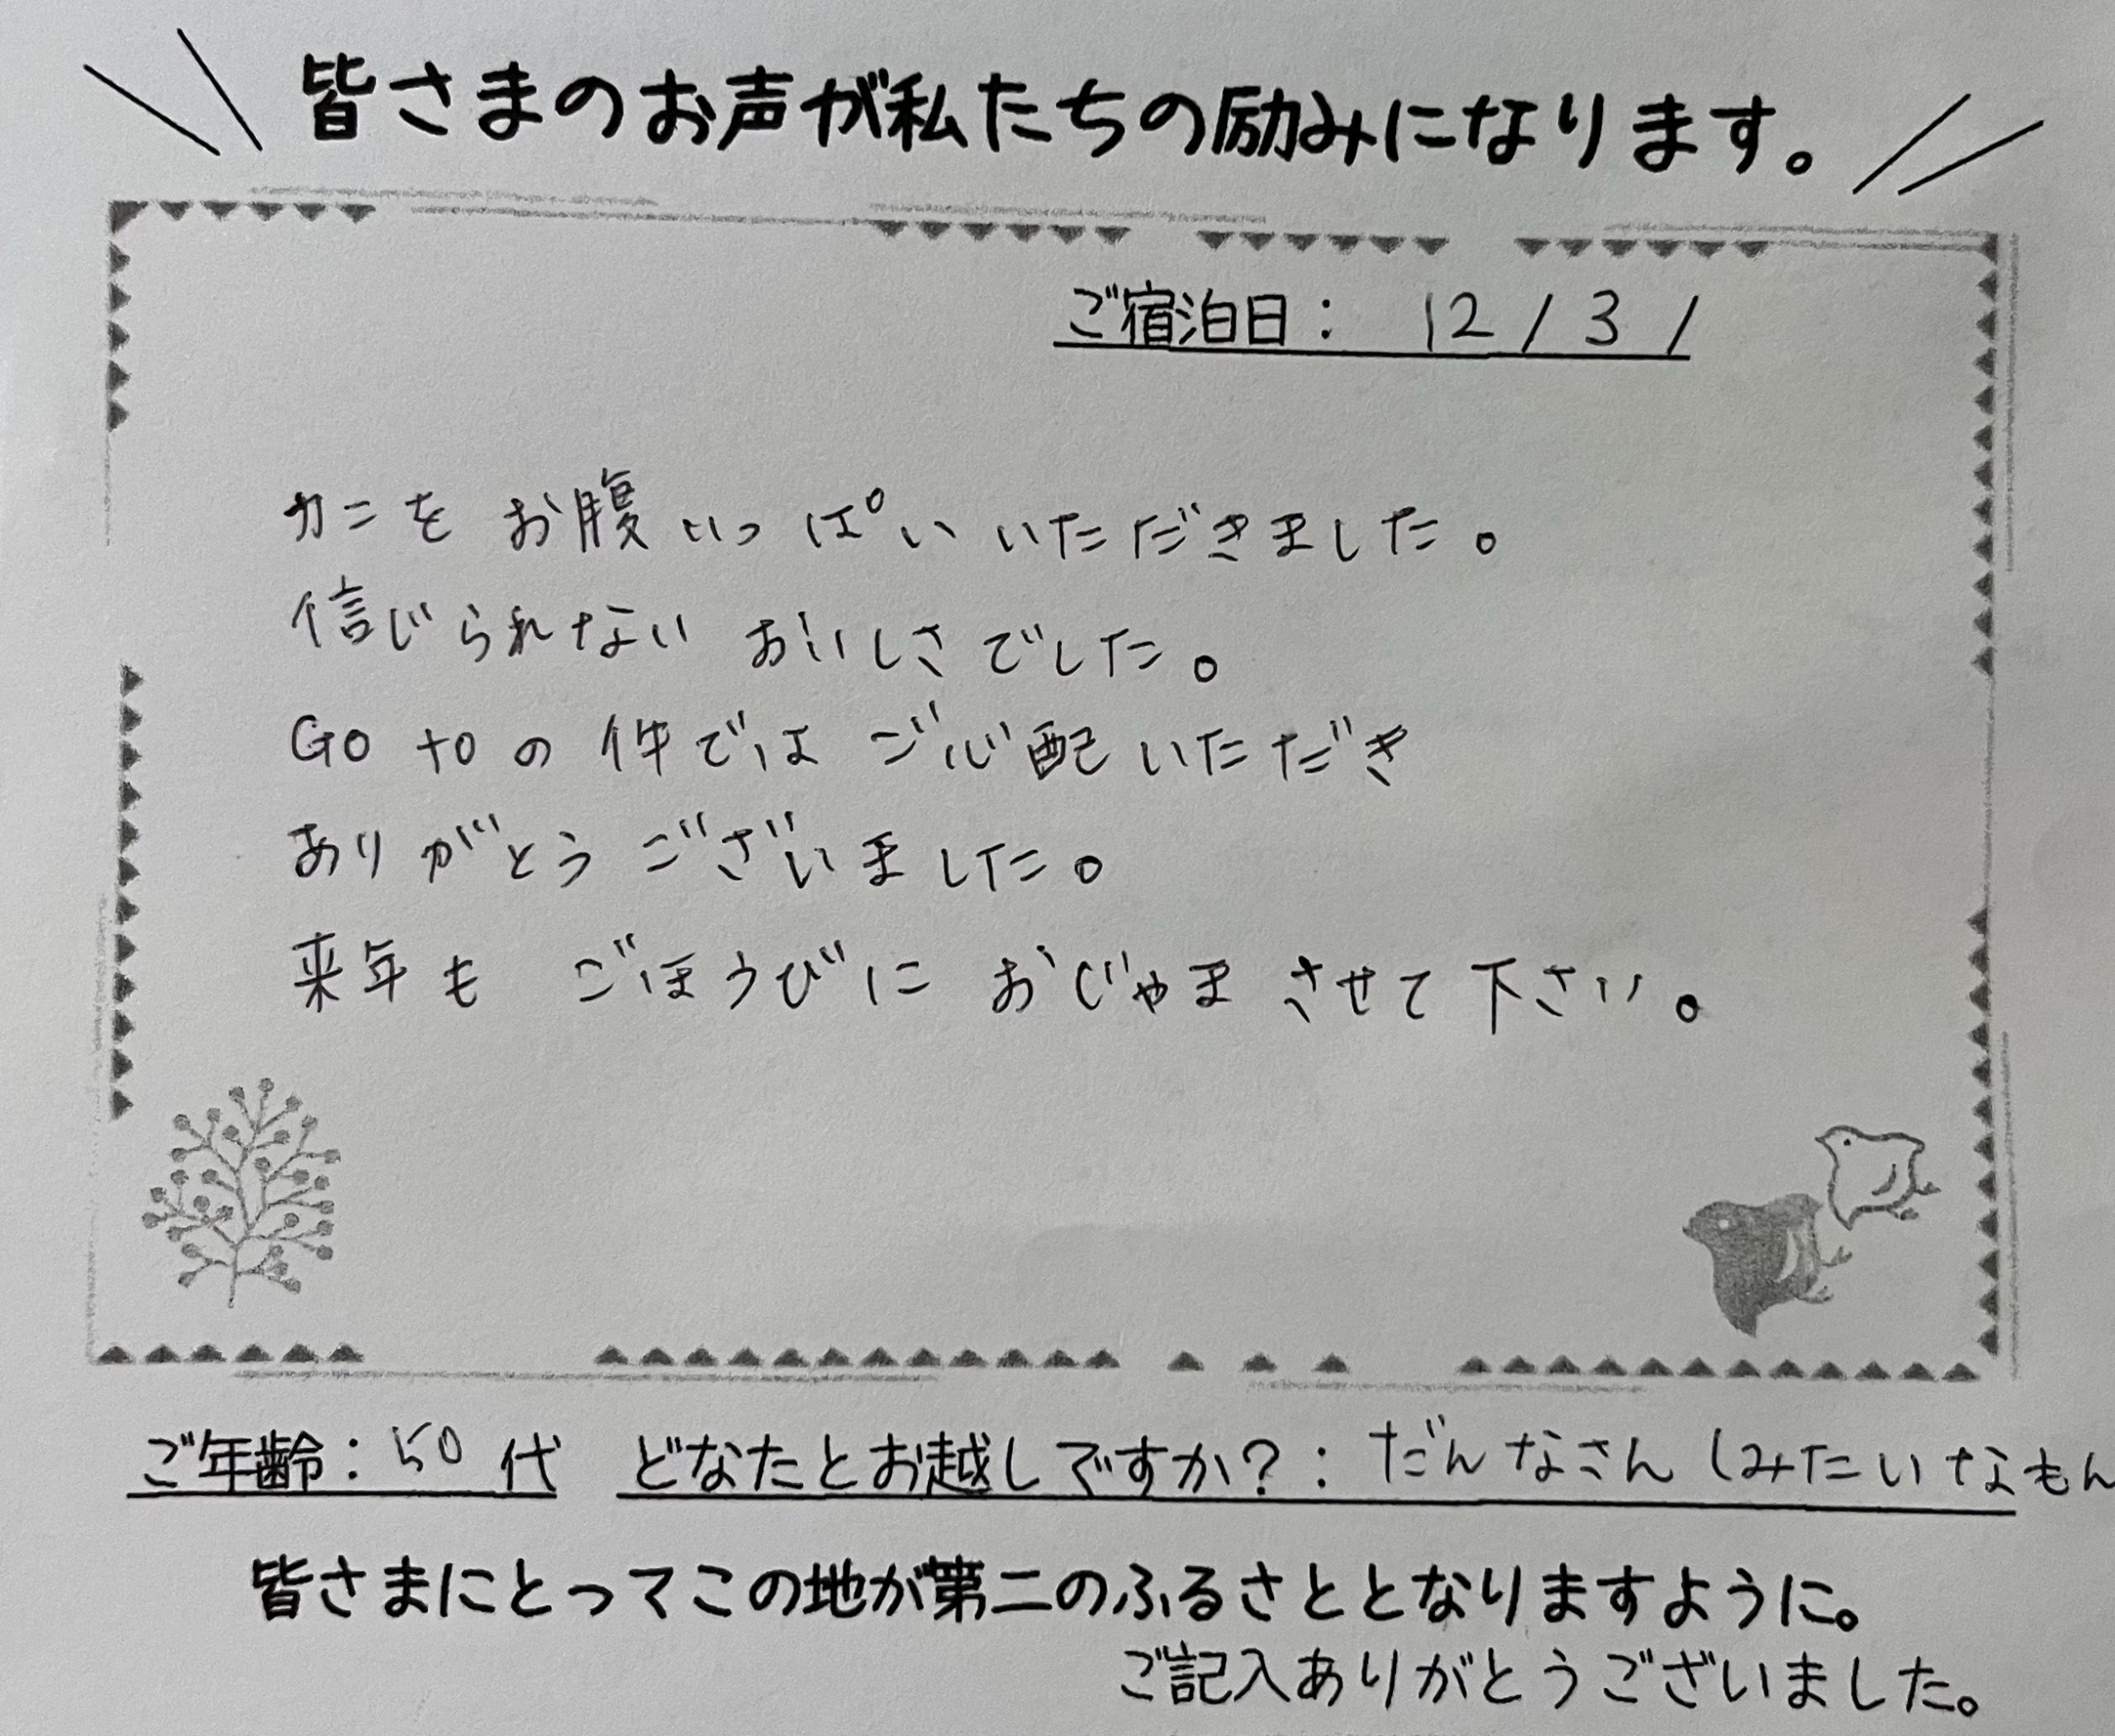 皆さまのお声が私たちの励みになります。
ご宿泊日： 12/31
カニを お腹いっぱい いただきました。
信じられない おいしさでした。
Go toの件では ご心配いただき
ありがとうございました。
来年も ごほうびに おじゃまさせて下さい。
ご年齢：50代 どなたとお越しですか？：だんなさん（みたいなもん
皆さまにとってこの地が第二のふるさととなりますように。
ご記入ありがとうございました。